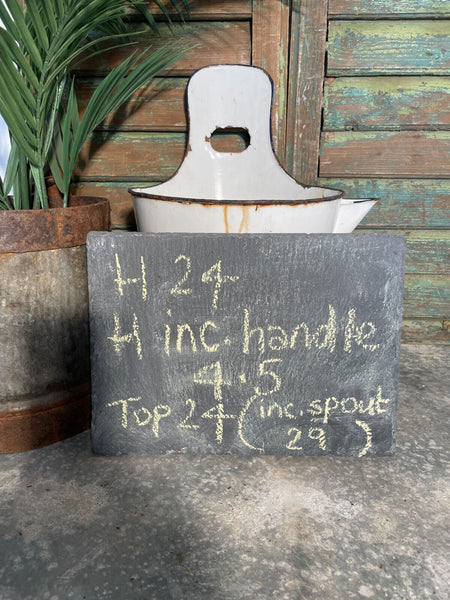 H 24
H inc. handle
4.5
Top 24 (inc. spout
29 )